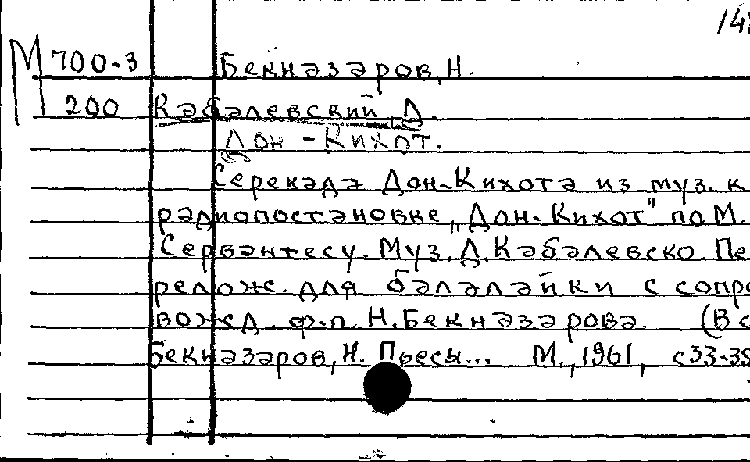 148
М 700-3 Бекназаров, Н.
200 Кабалевский, Д.
Дон-Кихот.
Серенада Дон-Кихота из муз. к
радиопостановке „Дон-Кихот" по М.
Сервантесу. Муз. Д. Кабалевско Пе
релож. для балалайки с сопро
вожд. ф-п. Н. Бекназарова (В с
Бекназаров, Н. Пьесы... М., 1961, с 33-35